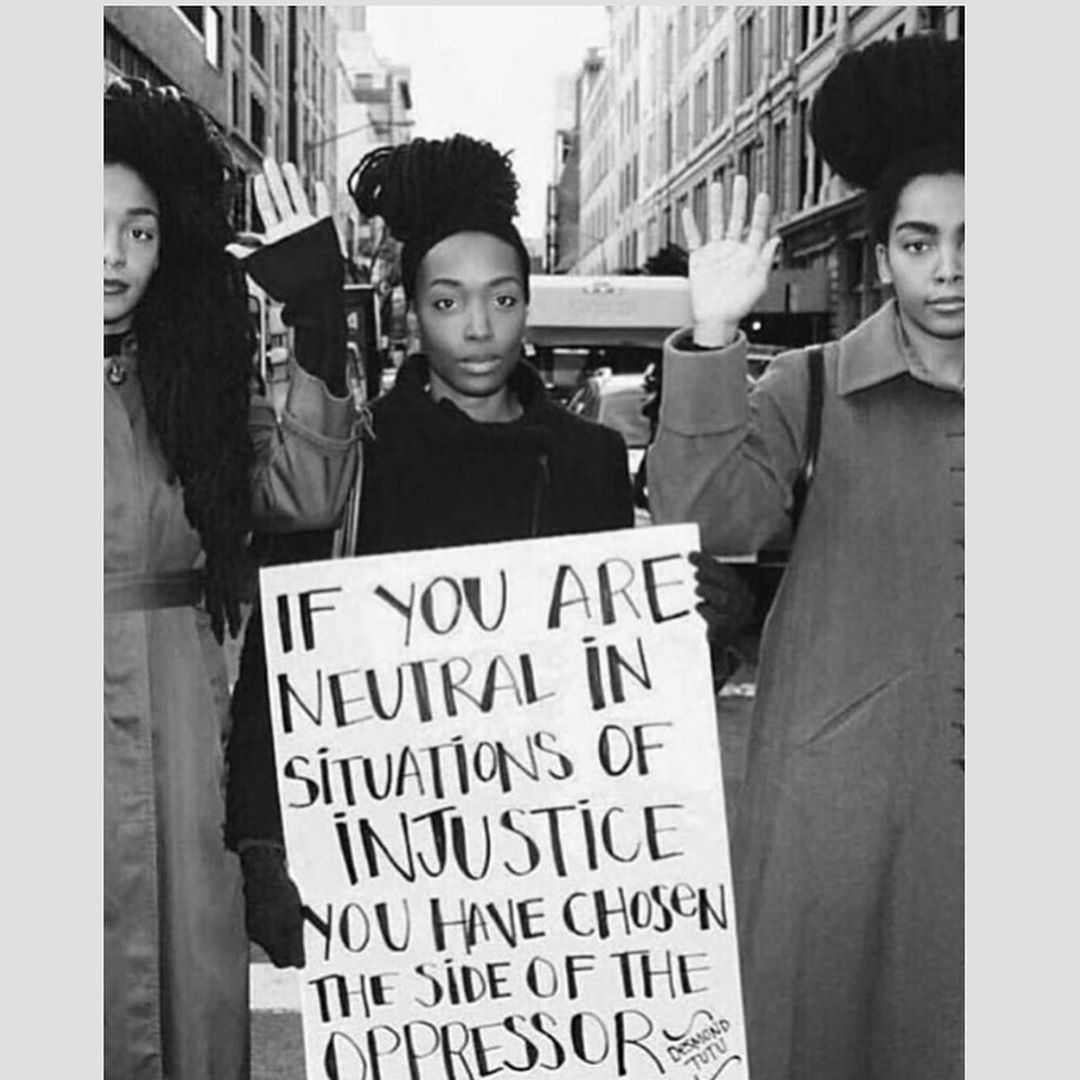 IF YOU ARE
NEUTRAL IN
SITUATIONS OF
INJUSTICE
YOU HAVE CHOSeN
THE SIDE OF THE
OPPRESSOR
DESMOND
TUTU